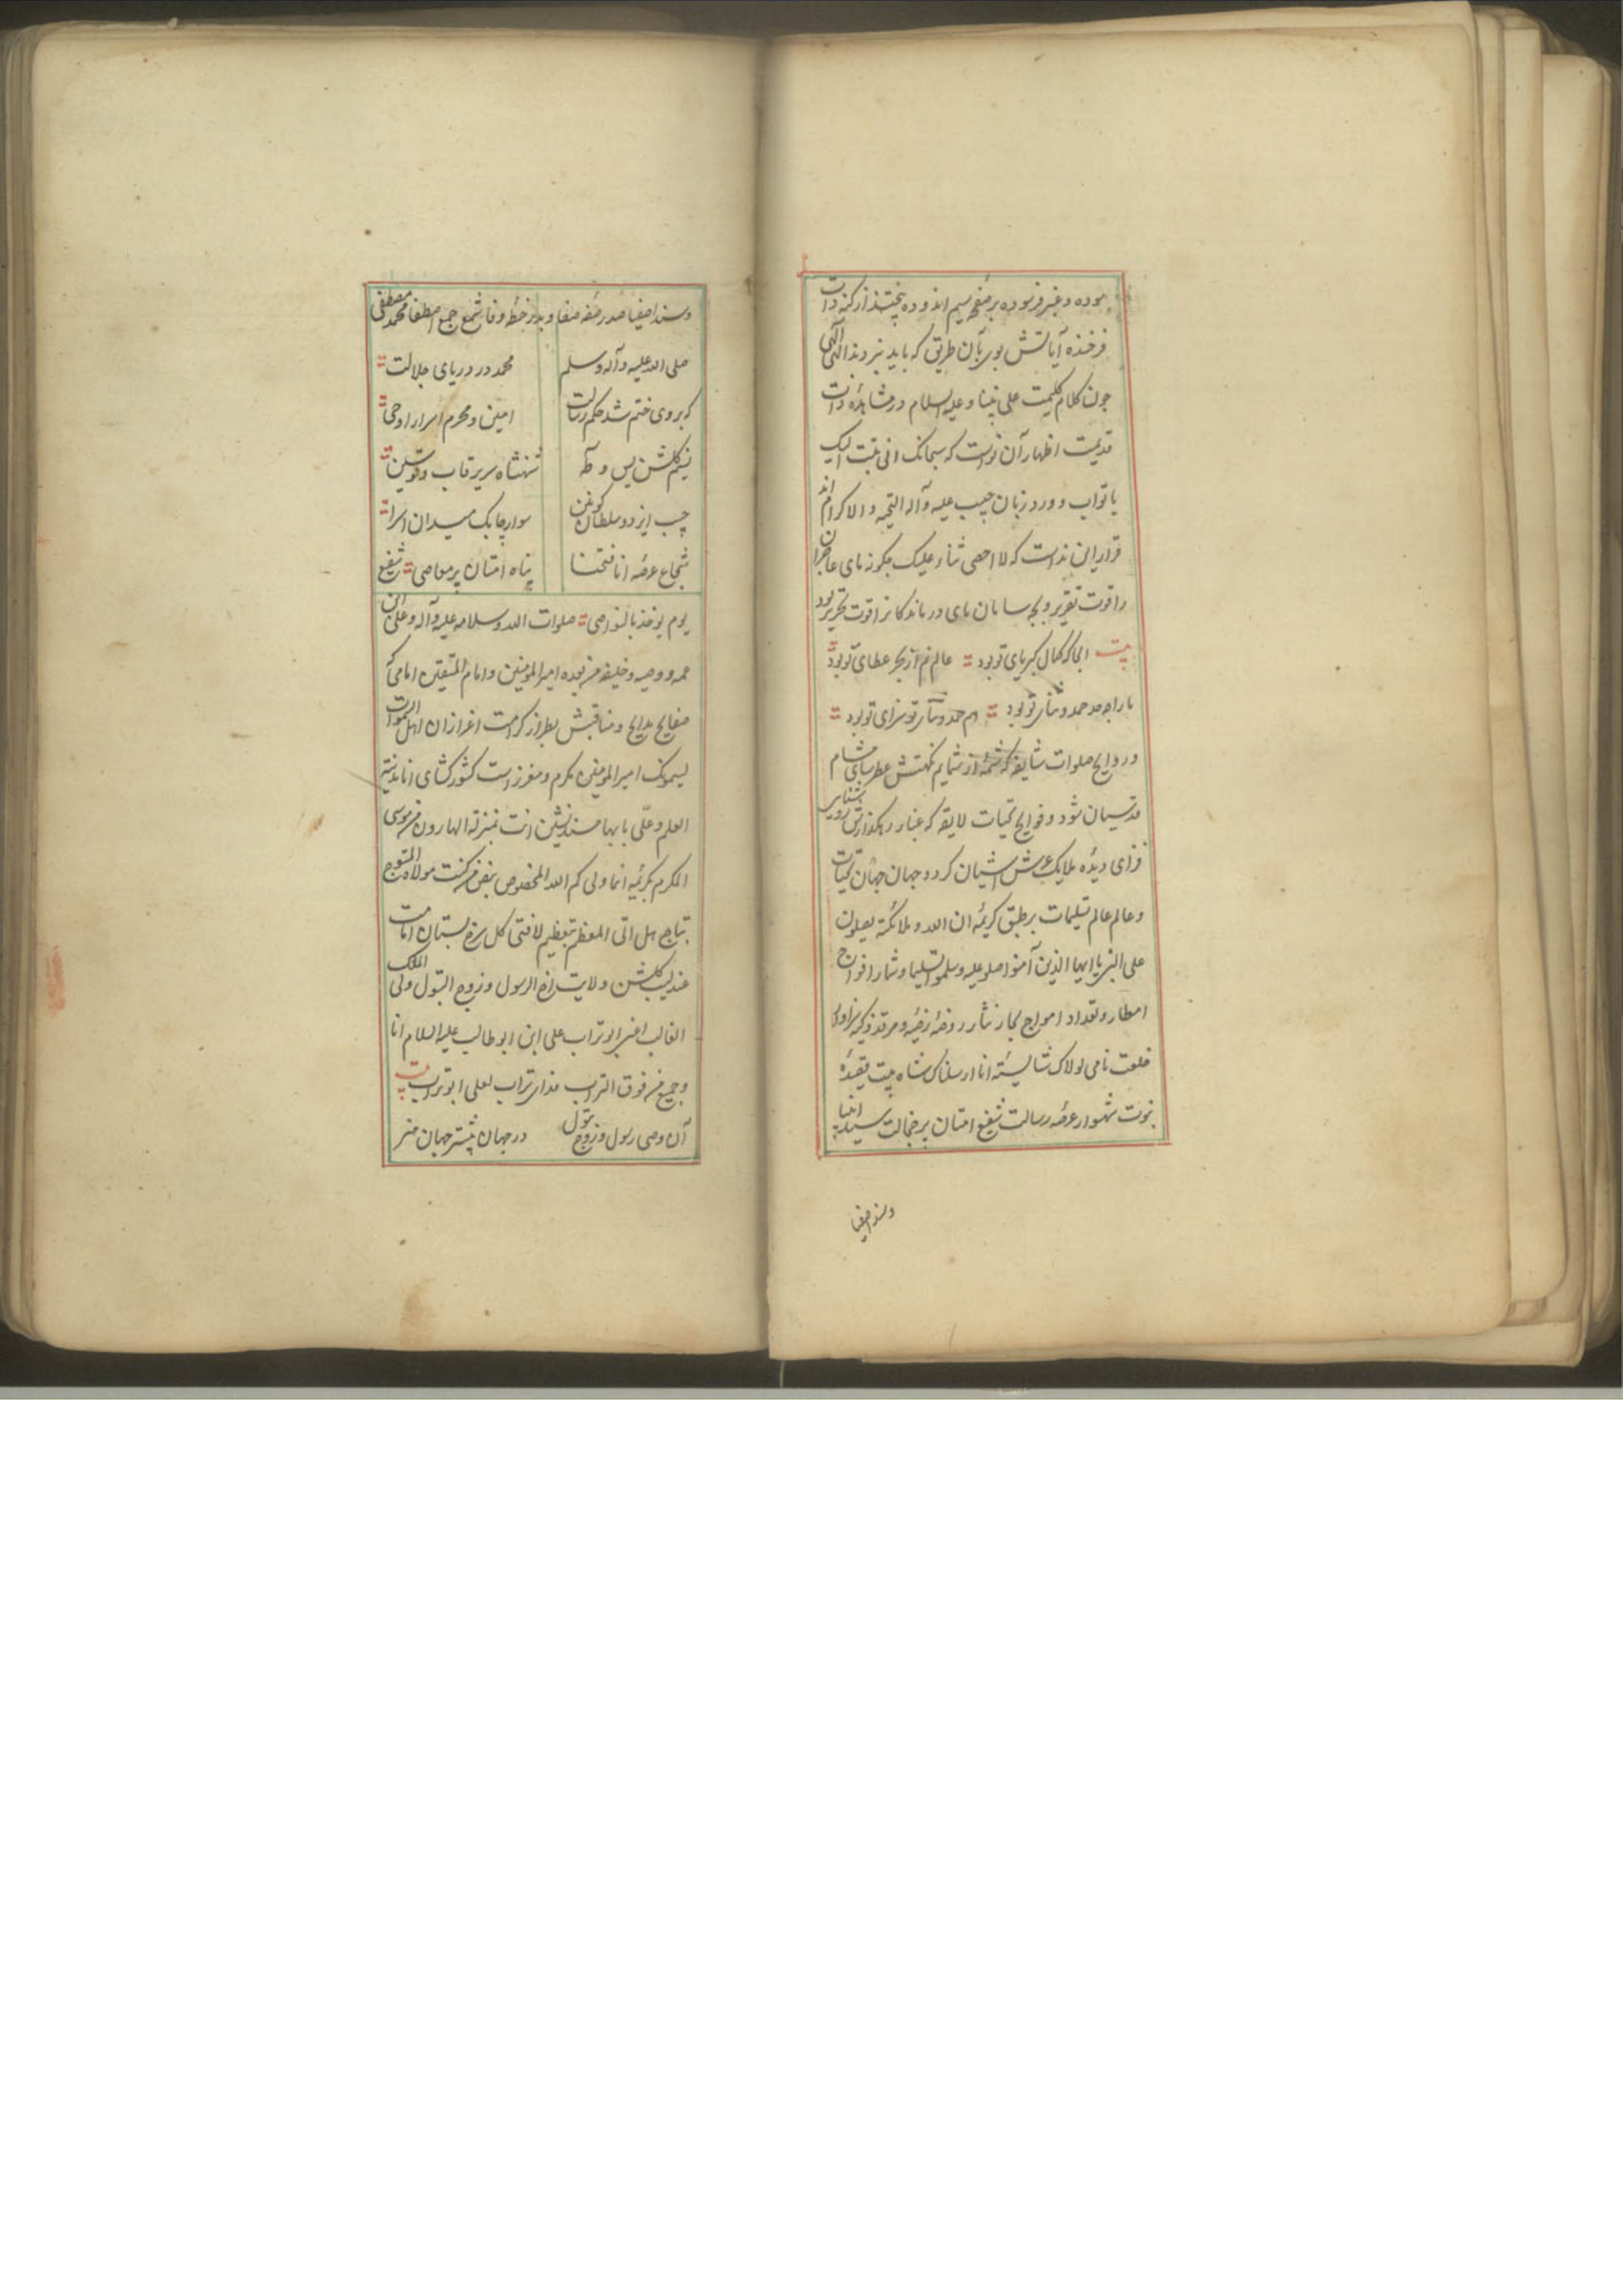 نموده و غیر فرسوده بر صفحه سیم اندوده پختند از کنه ذات
فرخنده آیاتش بوی بآن طریق که باید نبردند الهی الهی
چون کلام کلیمت علی نبینا و علیه السلام در مشاهده ذات
قدیمت اظهار آن نواست که سبحانک انی تبت الیک
یا تواب و ورد زبان حبیب علیه و آله التحیه والاکرام اند
قرار این نداست که لا احصی ثناء علیک چگونه مای عاجزان
را قوت تقریر و چه سامان مای درماندکانرا قوت تحریر بود
بیت آنجا که کمال کبریای تو بود عالم نم از بحر عطای تو بود
ما را چه حد حمد و ثنای تو بود هم حمد و ثنای تو سزای تو بود
و روایح صلوات شایقه که شمه از شمایم نکهتش عطرسای مشام
قدسیان شود و فوایح تحیات لایقه که غبار رهکذارش روشنایی
فزای دیده ملایک عرش آشیان کردد جهان جهان تحیات
و عالم عالم تسلیمات بر طبق کریمه ان الله و ملائکته یصلون
علی النبی یا ایها الذین آمنوا صلو علیه و سلموا تسلیما و شمار افواج
امطار و تعداد امواج بحار نثار روضه رضیه و مرقد زکیه سزاوار
خلعت نامی لولاک شایسته انا ارسلناک شاه بیت قصیده
نبوت شهسوار عرصه رسالت شفیع امتان پر خجالت سید انبیا
و سند اصفیا
و سند اصفیا صدر صفه صفا و بدر خطه وفا شمع جمع اصطفا محمد مصطفی
صلی الله علیه و آله و سلم محمد در دریای جلالت
که بر وی ختم شد حکم رسالت امین و محرم اسرار اوحی
نسیم کلشن یس و طه شهنشاه سریر قاب قوسین
حبیب ایزد و سلطان کونین سوار چابک میدان اسرا
شجاع عرصه انا فتحنا پناه امتان پر معاصی شفیع
یوم یوخذ بالنواصی صلوات الله و سلامه علیه و آله و علی ابن
عمه و وصیه و خلیفه من بعده امیر المومنین و امام المتقین امامی که
صفایح مدایح و مناقبش بطراز کرامت اعزاز ان اهل السموات
لیسمونک امیر المومنین مکرم و معزز است کشورکشای انا مدینة
العلم و علی بابها مسندنشین انت بمنزلة الهارون من موسی
المکرم بکریمه انما ولی کم الله المخصوص بنص من کنت مولاه المتوج
بتاج هل اتی المعظم بتعظیم لا فتی کل سرخ بستان امامت
عندلیب کلشن ولایت اخ الرسول و زوج البتول ولی الملک
الغالب اعنی ابو تراب علی ابن ابو طالب علیه السلام انا
و جمیع من فوق التراب فدای تراب لعلی ابو تراب بیت
آن وصی رسول و زوج بتول در جهان بیشتر جهان هنر